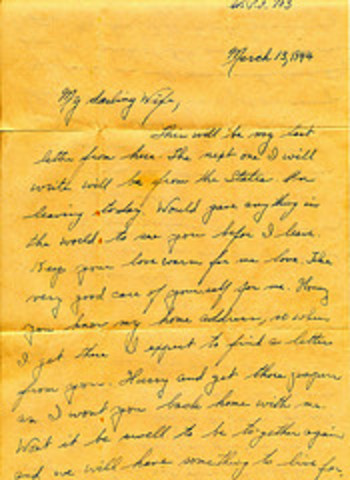 March 13, 1944
My darling Wife,
This will be my last
letter from here. The next one I will
write will be from the States. Am
leaving today. Would give anything in
the world to see you before I leave.
Keep your love warm for me love. Take
very good care of yourself for me. Honey
you have my home address, so when
I get there I expect to find a letter
from you. Hurry and get those papers
as I want you back home with me.
Wont it be swell to be together again
and we will have something to live for